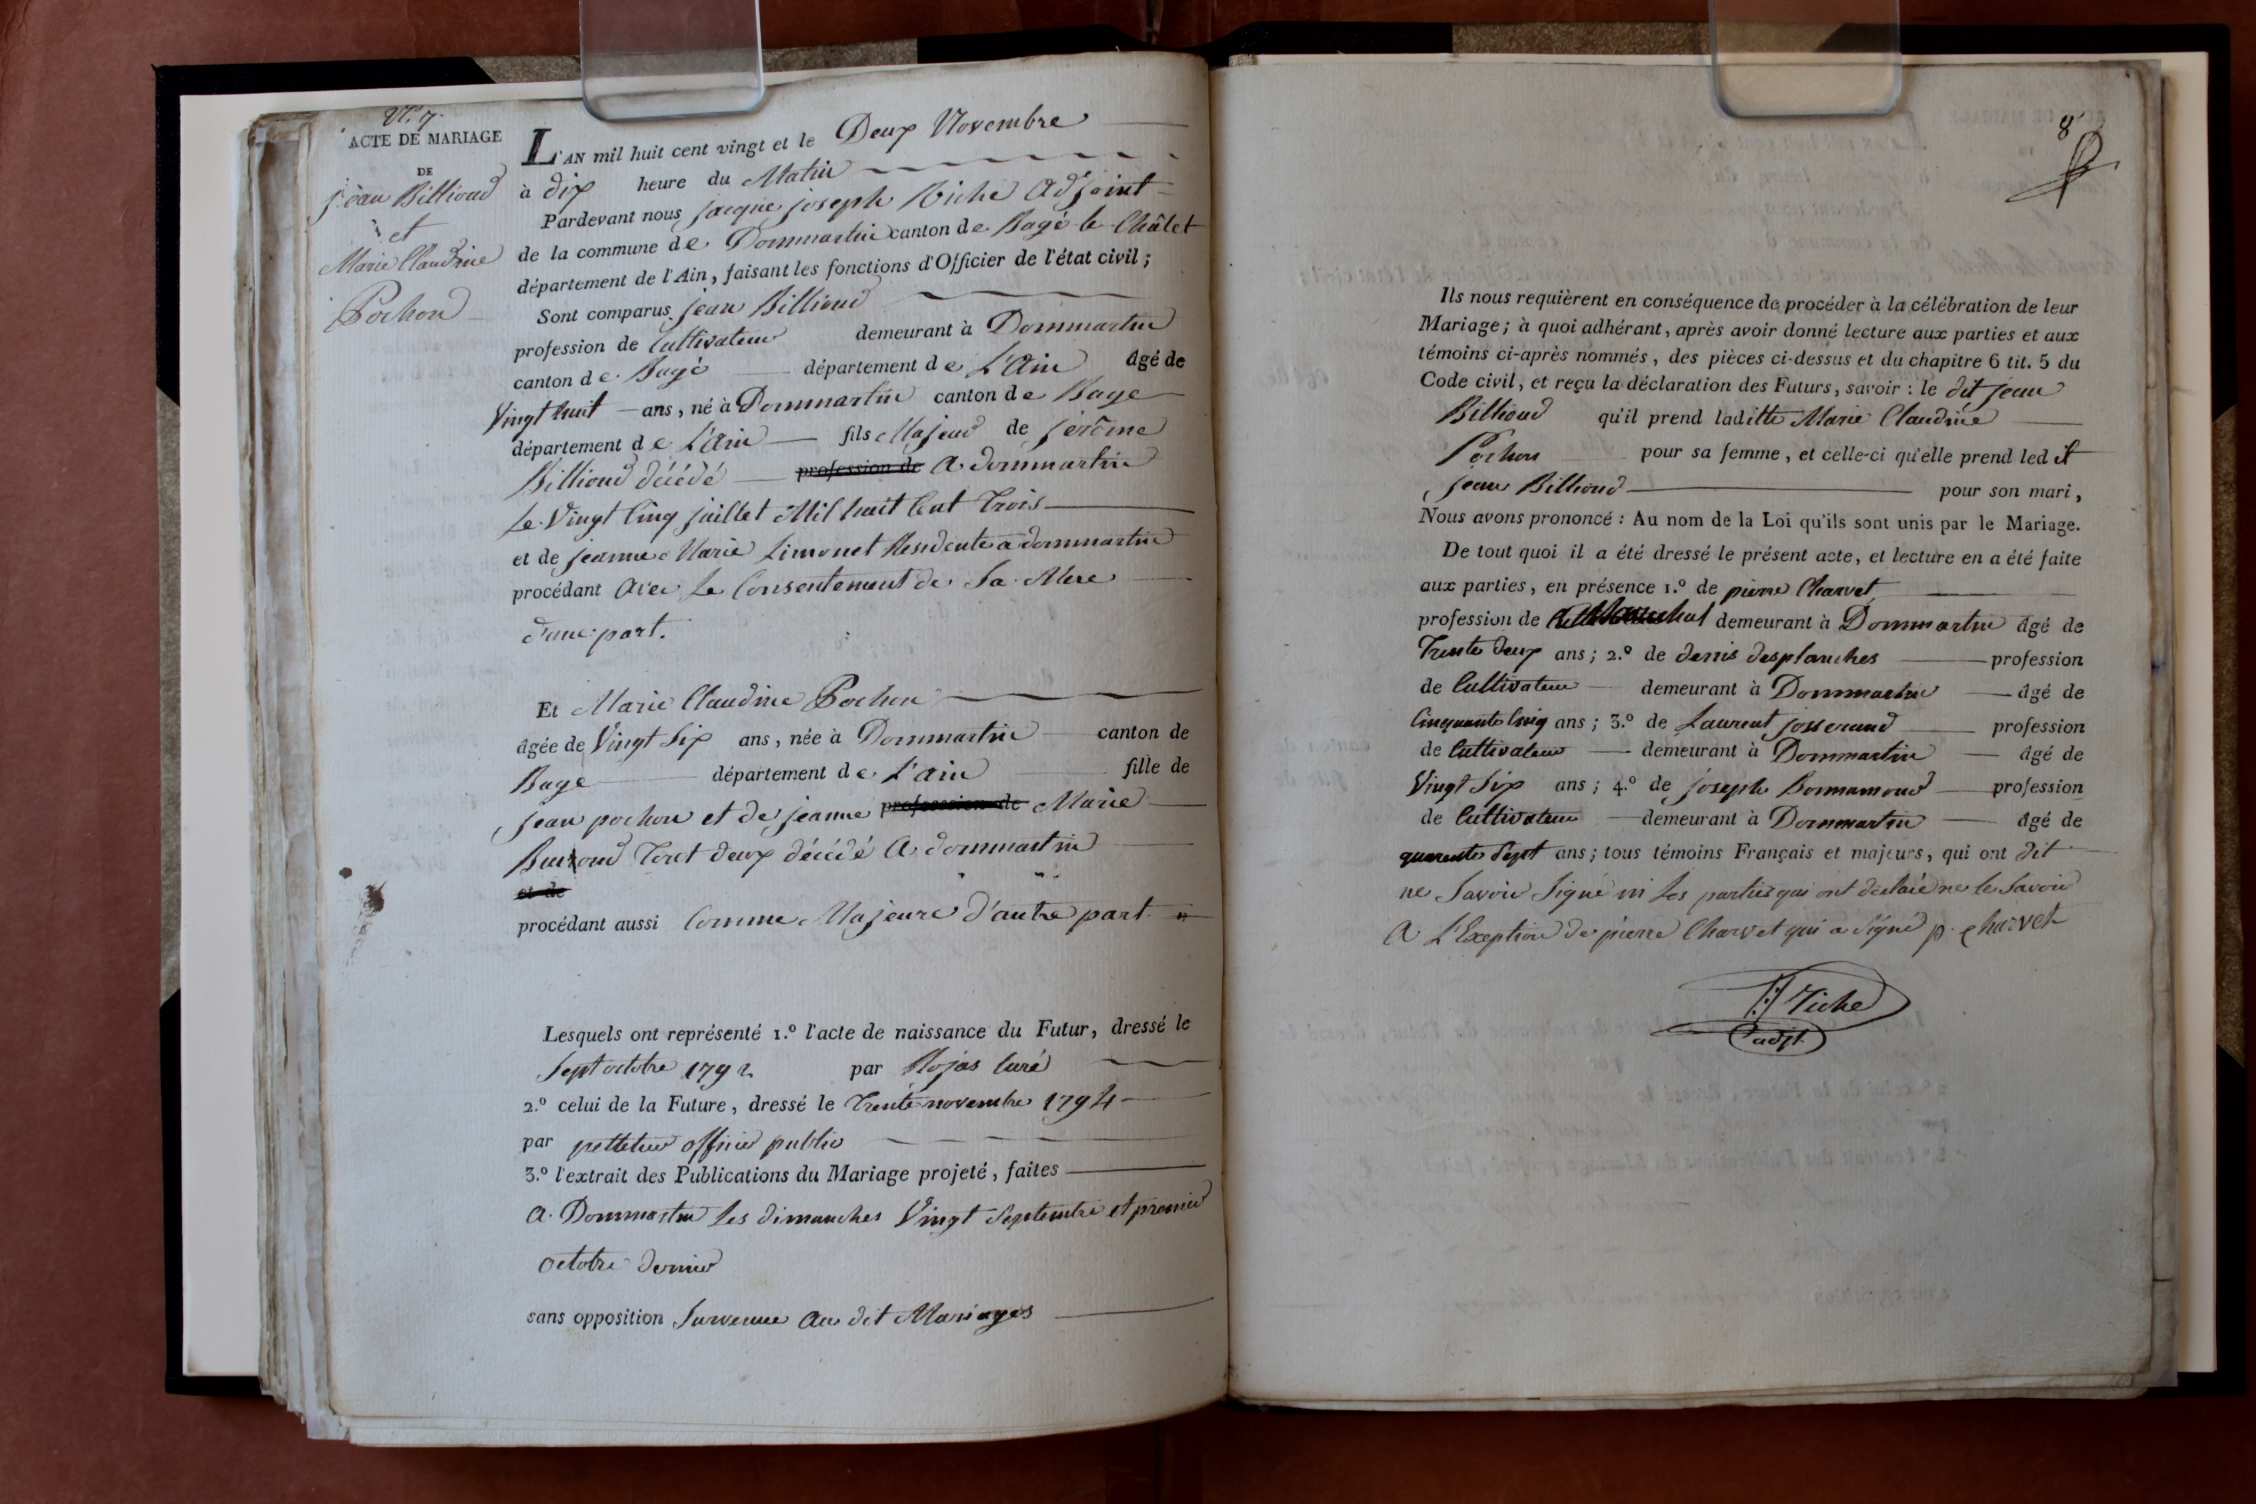 N.º 7.
ACTE DE MARIAGE
DE
jean Billioud
et
Marie Claudine
Pochon
L'AN mil huit cent vingt et le Deux Novembre
à dix heure du Matin
Pardevant nous jacque joseph Riche Adjoint
de la commune de Dommartin canton de Bagé le Châtel
département de l'Ain, faisant les fonctions d'Officier de l'état civil;
Sont comparus jean Billioud
profession de Cultivateur demeurant à Dommartin
canton de Bagé département de L'Ain âgé de
Vingt huit ans, né à Dommartin canton de Bage
département de L'Ain fils Majeur de jérôme
Billioud décédé profession de A dommartin
Le Vingt Cinq juillet Mil huit Cent Trois
et de jeanne Marie Limonet Residente a dommartin
procédant avec Le Consentement de Sa Mere
d'une part.
Et Marie Claudine Pochon
âgée de Vingt Six ans, née à Dommartin canton de
Bage département de L'ain fille de
jean pochon et de jeanne profession de Marie
tout deux décédé A dommartin
et de
procédant aussi Comme Majeure d'autre part
Lesquels ont représenté 1.º l'acte de naissance du Futur, dressé le
Sept octobre 1792 par Rojas Curé
2.º celui de la Future, dressé le Trente novembre 1794
par officier public
3.º l'extrait des Publications du Mariage projeté, faites
A Dommartin Les dimanches Vingt Septembre et premier
octobre dernier
sans opposition Survenue Au dit Mariages
8
Ils nous requièrent en conséquence de procéder à la célébration de leur
Mariage; à quoi adhérant, après avoir donné lecture aux parties et aux
témoins ci-après nommés, des pièces ci-dessus et du chapitre 6 tit. 5 du
Code civil, et reçu la déclaration des Futurs, savoir : le dit jean
Billioud qu'il prend laditte Marie Claudine
Pochon pour sa femme, et celle-ci qu'elle prend ledit
jean Billioud pour son mari,
Nous avons prononcé : Au nom de la Loi qu'ils sont unis par le Mariage.
De tout quoi il a été dressé le présent acte, et lecture en a été faite
aux parties, en présence 1.º de pierre Charvet
profession de Marechal demeurant à Dommartin âgé de
Trente deux ans; 2.º de denis desplanches profession
de Cultivateur demeurant à Dommartin âgé de
Cinquante Cinq ans; 3.º de Laurent josserand profession
de Cultivateur demeurant à Dommartin âgé de
Vingt Six ans; 4.º de joseph Bonnamour profession
de Cultivateur demeurant à Dommartin âgé de
quarente Sept ans; tous témoins Français et majeurs, qui ont dit
ne Savoir Signé ni Les parties qui ont déclaré ne le Savoir
A L'Exeption de pierre Charvet qui a Signé p. charvet
Riche
adjt